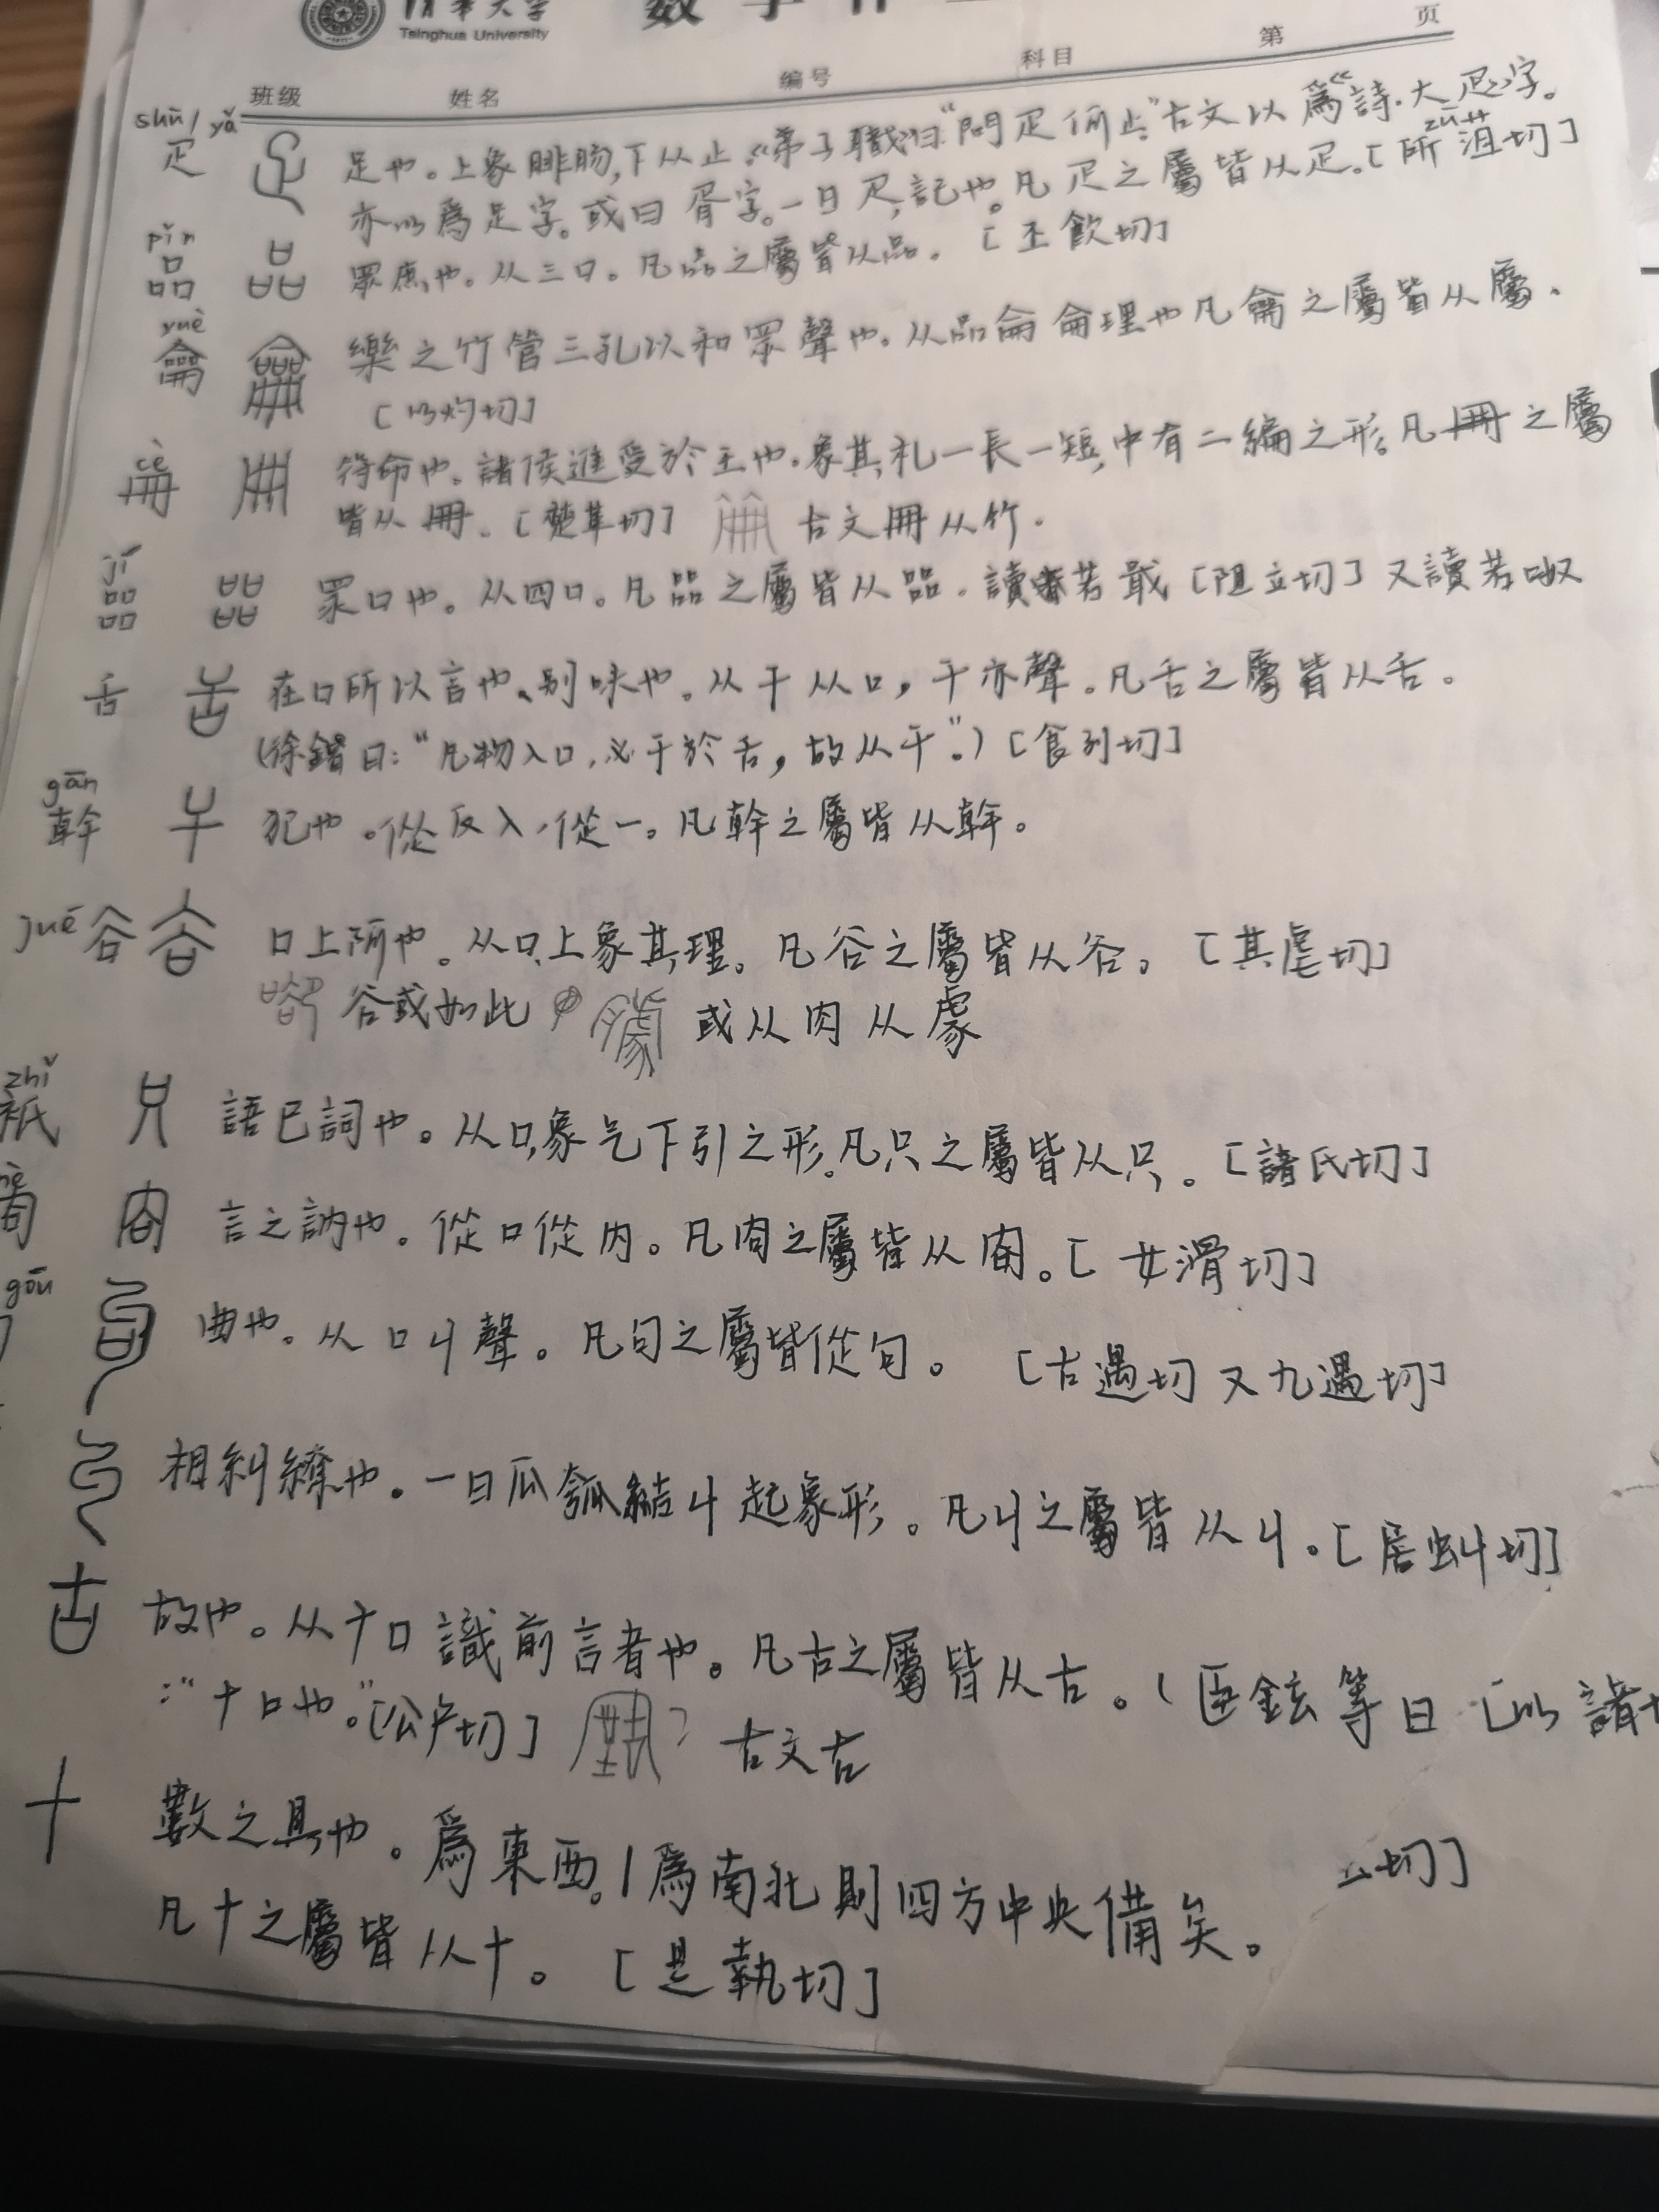 清华大学 数学作业
Tsinghua University
班级 姓名 编号 科目 第 页
shū/yǎ
疋 足也。上象腓肠,下从止。《弟子職》曰“問疋何止”古文以爲《詩·大疋》字。
zū
亦以爲足字。或曰胥字。一曰疋,記也。凡疋之屬皆从疋。[所沮切]
pǐn
品 眾庶也。从三口。凡品之屬皆从品。[丕飲切]
yuè
龠 樂之竹管三孔以和眾聲也。从品侖侖理也凡龠之屬皆从屬.
[以灼切]
cè
冊 符命也。諸侯進受於王也。象其札一長一短,中有二編之形。凡冊之屬
皆从冊.[楚革切] 古文冊从竹.
jí
㗊 眾口也。从四口。凡㗊之屬皆从㗊.讀若戢[阻立切]又讀若呶
舌 在口所以言也、别味也。从干从口,干亦聲.凡舌之屬皆从舌.
(徐鍇曰:“凡物入口,必干於舌,故从干”。)[食列切]
gān
幹 犯也。從反入,從一。凡幹之屬皆从幹。
jué 谷 口上阿也。从口,上象其理。凡谷之屬皆从谷。[其虐切]
谷或如此 或从肉从豦
zhǐ
衹 語已詞也。从口,象气下引之形。凡只之屬皆从只。[諸氏切]
㕯 言之訥也。從口從内。凡㕯之屬皆从㕯。[女滑切]
gōu
曲也。从口丩聲。凡句之屬皆從句。[古遇切又九遇切]
相糾繚也。一曰瓜瓠結丩起象形。凡丩之屬皆从丩。[居虯切]
故也。从十口識前言者也。凡古之屬皆从古。(臣鉉等曰[以諸
:“十口也。”[公户切] 古文古
十 數之具也。爲東西。丨爲南北則四方中央備矣。 切]
凡十之屬皆从十。[是執切]